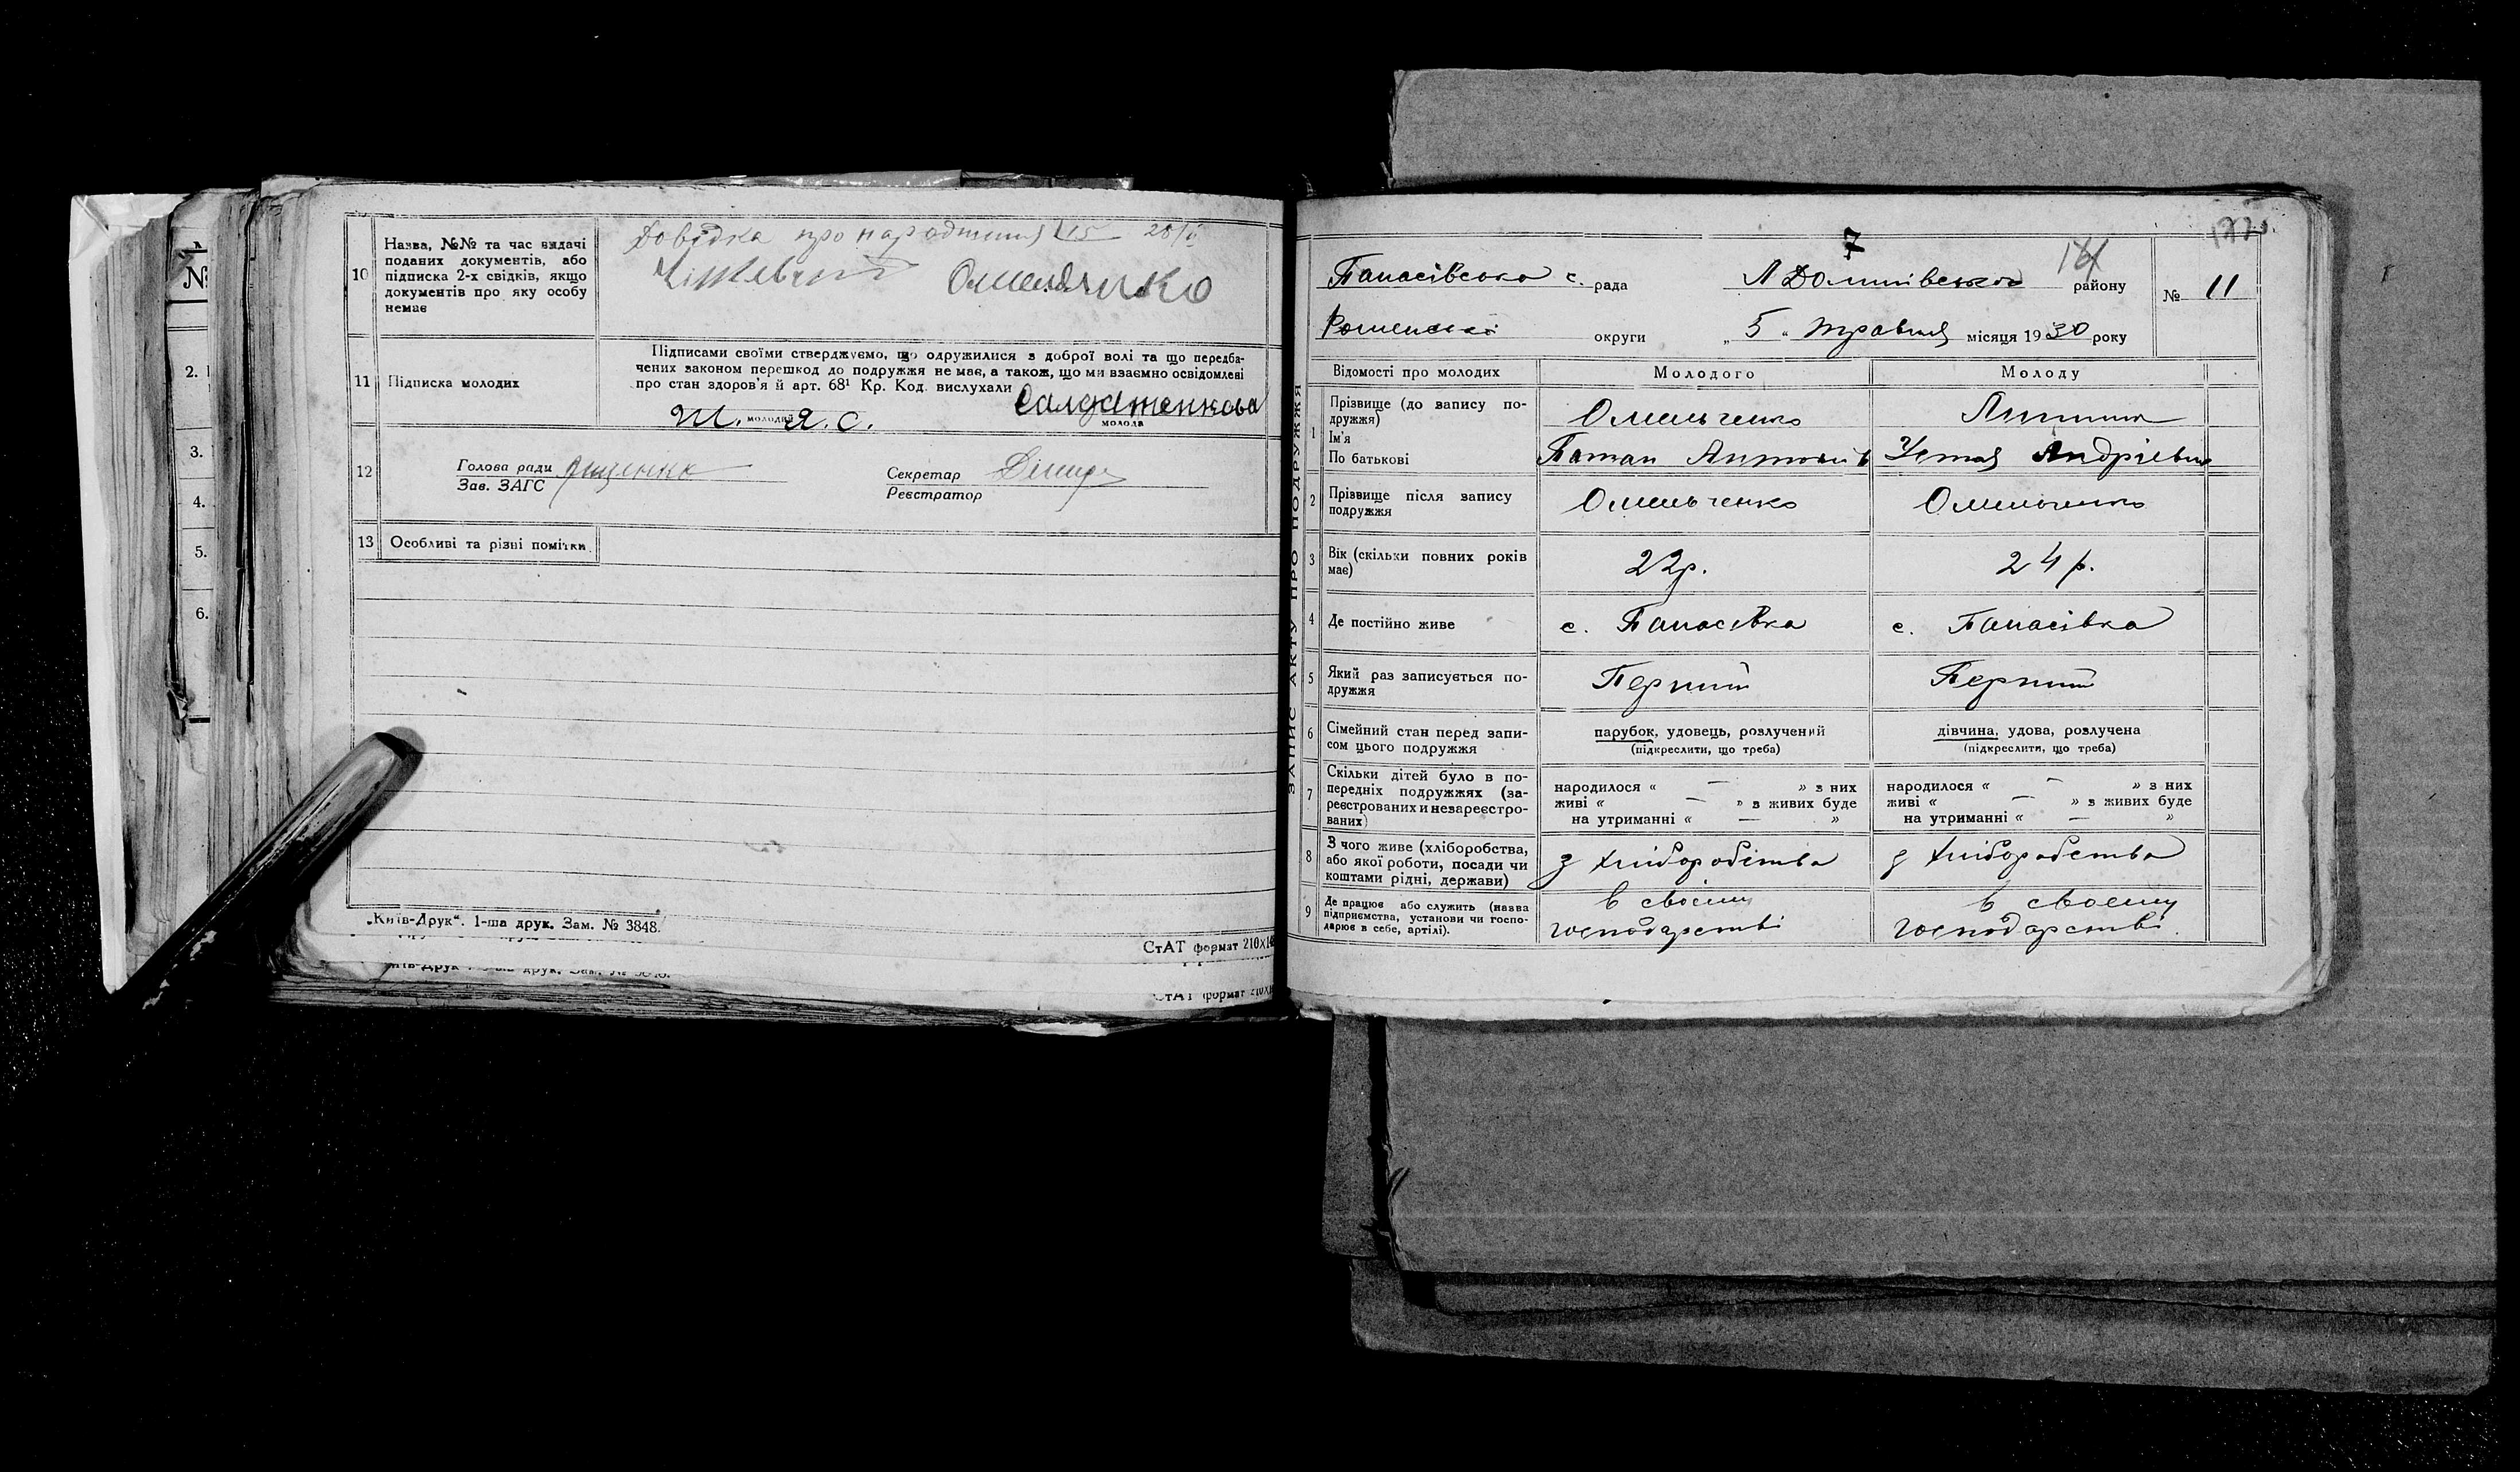 10
Назва, №№ та час видачі
поданих документів, або
підписка 2-х свідків, якщо
документів про яку особу
немає
Довідка про народження 15 28/
Омельянко
11
Підписка молодих
Підписами своїми стверджуємо, що одружилися з доброї волі та що передба-
чених законом перешкод до подружжя немає, а також, що ми взаємно освідомлені
про стан здоров'я й арт. 68¹ Кр. Код. вислухали
молодий
молода
12
Голова ради
Зав. ЗАГС
Секретар
Реєстратор
13
Особливі та різні помітки.
„Київ-Друк“. 1-ша друк. Зам. № 3848.
СтАТ формат 210×14
№
2.
3.
4.
5.
6.
ЗАПИС АКТУ ПРО ПОДРУЖЖЯ
7
Панасівська с. рада
району
№ 11
Роменської округи
„ 5 “ травня місяця 1930 року
Відомості про молодих
Молодого
Молоду
1
Прізвище (до запису по-
дружжя)
Ім'я
По батькові
Омельченко
Потап Антонів
Устя Андріївна
2
Прізвище після запису
подружжя
Омельченко
Омельченко
3
Вік (скільки повних років
має)
22р.
24р.
4
Де постійно живе
с. Панасівка
с. Панасівка
5
Який раз записується по-
дружжя
Перший
Перший
6
Сімейний стан перед запи-
сом цього подружжя
парубок, удовець, розлучений
(підкреслити, що треба)
дівчина, удова, розлучена
(підкреслити, що треба)
7
Скільки дітей було в по-
передніх подружжях (за-
реєстрованих и незареєстро-
ваних)
народилося « — » з них
живі « — » з живих буде
на утриманні « — »
народилося « — » з них
живі « — » з живих буде
на утриманні « — »
8
З чого живе (хліборобства,
або якої роботи, посади чи
коштами рідні, держави)
з хліборобства
з хліборобства
9
Де працює або служить (назва
підприємства, установи чи госпо-
дарює в себе, артілі).
в своєму
господарстві
в своєму
господарстві.